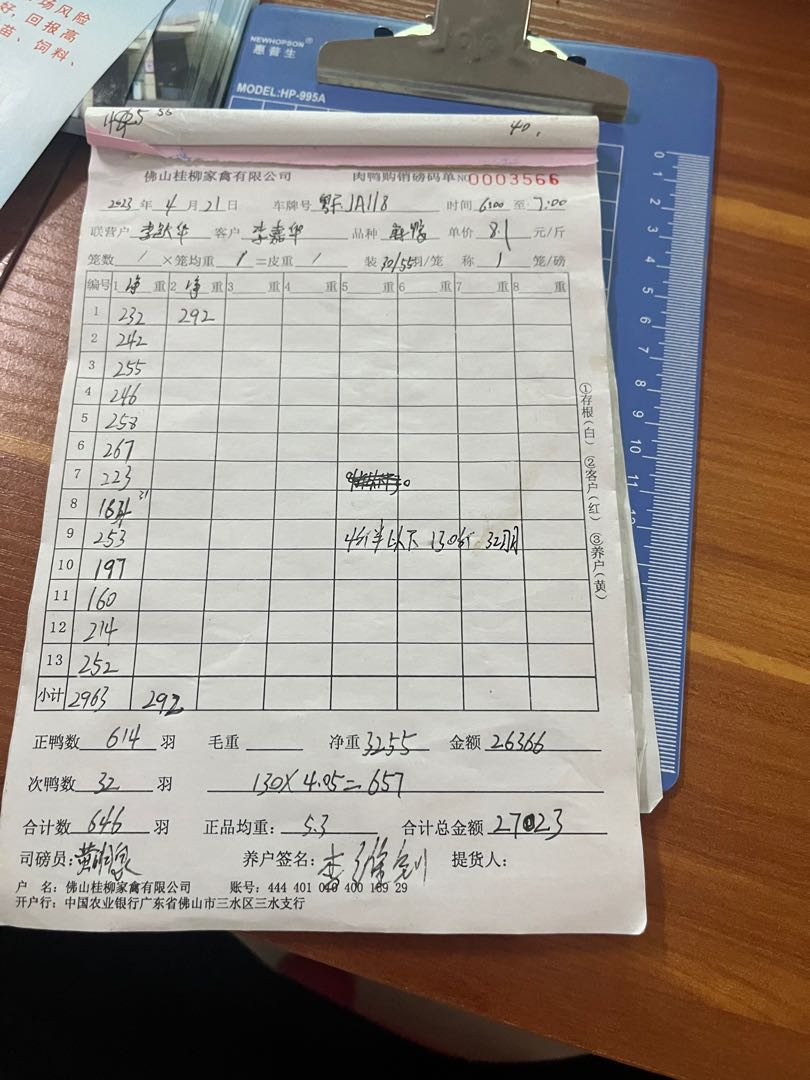 场风险
好,回报高
苗、饲料、
NEWHOPSON®
惠普生
MODEL:HP-995A
55
40.
佛山桂柳家禽有限公司 肉鸭购销磅码单 NO 0003566
2023 年 4 月 21 日 车牌号 粤JA118 时间 6:00 至 7:00
联营户 客户 李嘉华 品种 麻鸭 单价 8.1 元/斤
笼数 / ×笼均重 / =皮重 / 装 30/55 羽/笼 称 1 笼/磅
编号 1 净 重 2 净 重 3 重 4 重 5 重 6 重 7 重 8 重
1 232 292
2 242
3 255
4 246
5 258
6 267
7 223
8 31
9 253 4斤半以下 130斤 32只
10 197
11 160
12 214
13 252
小计 2963 292
正鸭数 614 羽 毛重 净重 3255 金额 26366
次鸭数 32 羽 130×4.05=657
合计数 646 羽 正品均重: 5.3 合计总金额 27023
司磅员: 养户签名: 提货人:
户 名: 佛山桂柳家禽有限公司 账号: 444 401 040 400 189 29
开户行: 中国农业银行广东省佛山市三水区三水支行
①存根(白) ②客户(红) ③养户(黄)
0 1 2 3 4 5 6 7 8 9 10 11 12